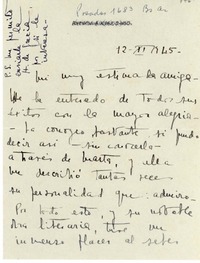 Posadas 1683 Bs As
12-XI-945.
P.S. me permito
Mi muy estimada amiga-
He enterado de todos sus
éxitos con la mayor alegría-
La conozco bastante si puedo
decir así - sin conocerla
a través de Marta, y ella
me describió tantas veces
su personalidad que admiro-
Por todo esto, y su notable
obra literaria, tuve un
inmenso placer al saber